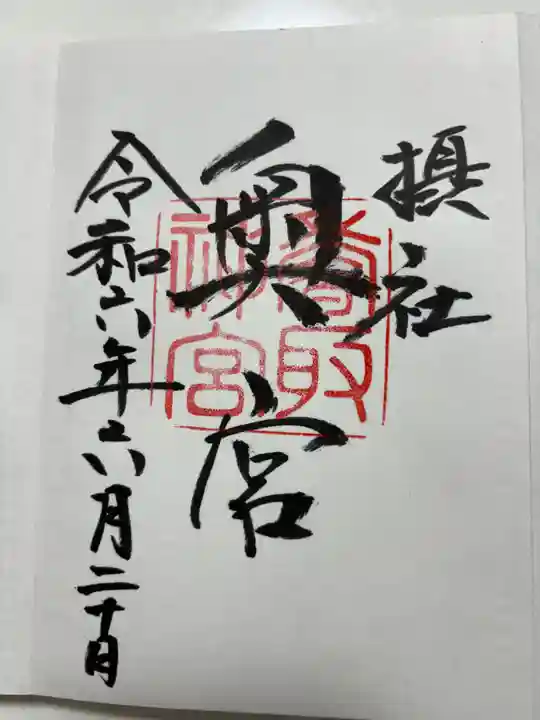 摂社
奥宮
香取
神宮
令和六年六月二十日